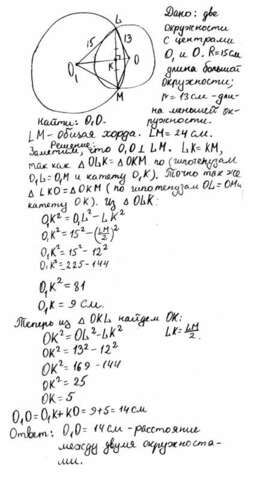 Дано: две
окружности
с центрами
O₁ и O. R=15см
длина большой
окружности;
r = 13см - дли-
на меньшей ок-
ружности.
L
15
13
O₁
K
O
M
Найти: O₁O.
LM - Общая хорда. LM = 24см.
Решение:
Заметим, что O₁O⊥LM. LK=KM,
так как △O₁LK=△O₁KM по (гипотенузам
O₁L=O₁M и катету O₁K). Точно так же
△LKO=△OKM (по гипотенузам OL=OM и
катету OK). Из △O₁LK:
O₁K²=O₁L²-LK²
O₁K²=15²-(LM/2)²
O₁K²=15²-12²
O₁K²=225-144
O₁K²=81
O₁K=9см.
Теперь из △OKL найдем OK:
OK²=OL²-LK²
LK=LM/2.
OK²=13²-12²
OK²=169-144
OK²=25
OK=5
O₁O=O₁K+KO=9+5=14см
Ответ: O₁O=14см - расстояние
между двумя окружностя-
ми.